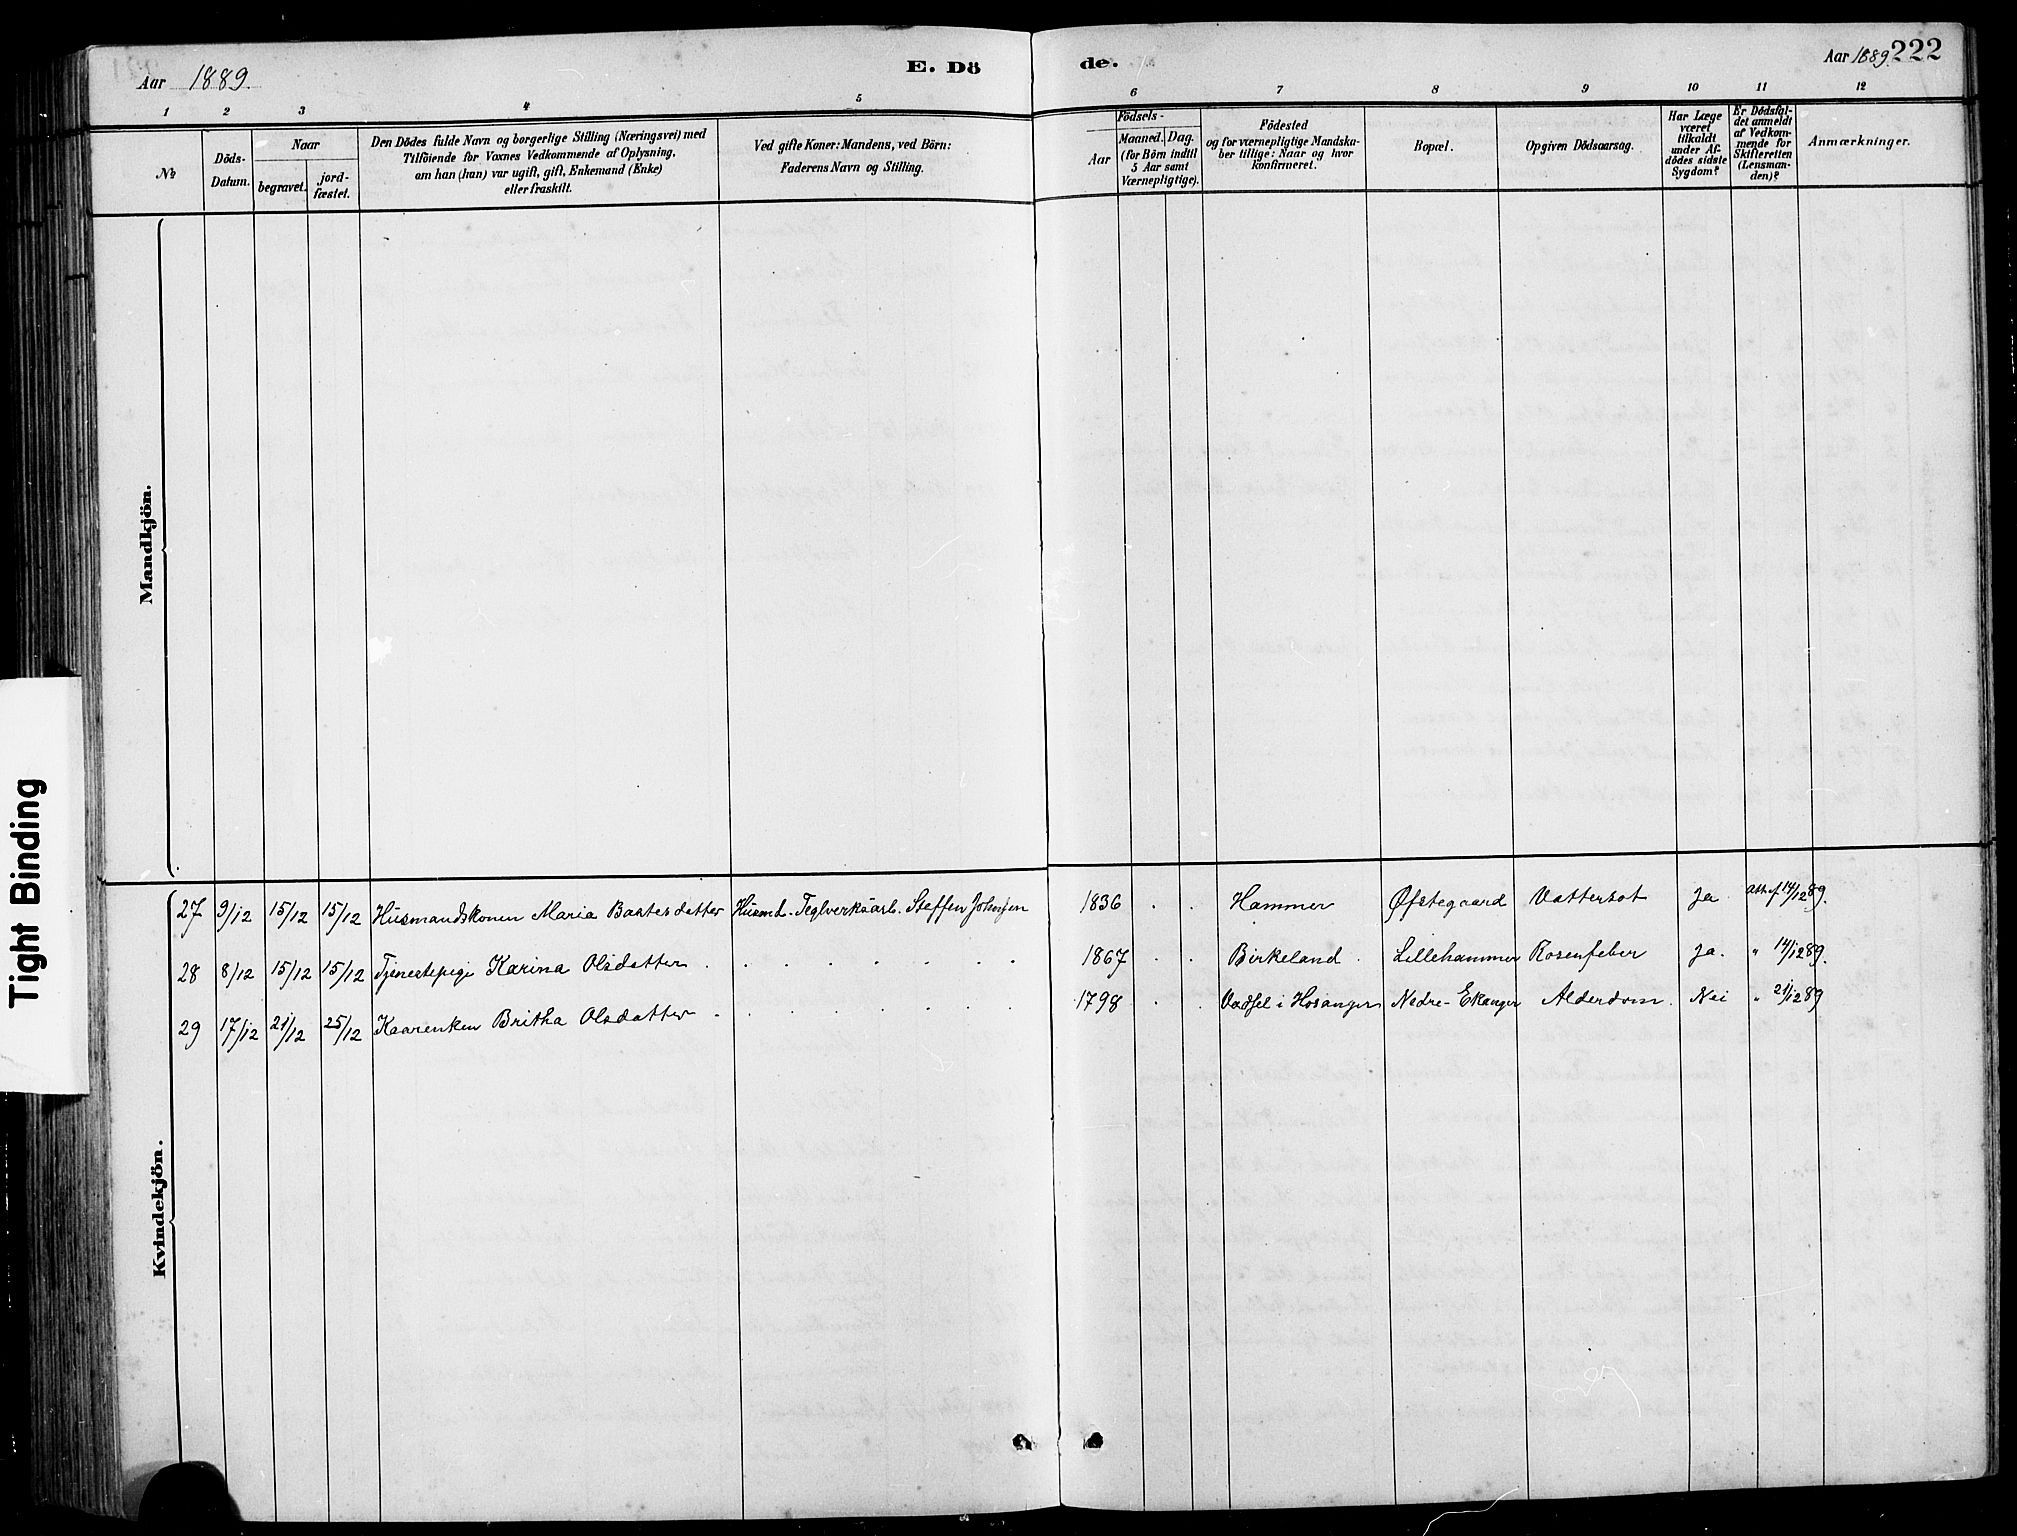 Aar 1889.
E. Dö
de.
Aar 1889.
222
1 2 3 4 5 6 7 8 9 10 11 12
№
Döds-
Datum.
Naar
begravet.
jord-
fæstet.
Den Dödes fulde Navn og borgerlige Stilling (Næringsvei) med
Tilföiende for Voxnes Vedkommende af Oplysning,
om han (hun) var ugift, gift, Enkemand (Enke)
eller fraskilt.
Ved gifte Koner: Mandens, ved Börn:
Faderens Navn og Stilling.
Födsels-
Aar
Maaned. Dag.
(for Börn indtil
5 Aar samt
Værnepligtige).
Födested
og for værnepligtige Mandska-
ber tillige: Naar og hvor
konfirmeret.
Bopæl.
Opgiven Dödsaarsag.
Har Læge
været
tilkaldt
under Af-
dödes sidste
Sygdom?
Er Dödsfal-
det anmeldt
af Vedkom-
mende for
Skifteretten
(Lensman-
den)?
Anmærkninger.
Mandkjön.
Tight Binding
Kvindekjön.
27 9/12 15/12 15/12 Husmandskonen Maria Baatesdatter Husmd. Teglverksarb. Steffen Johnsen 1836 . . Hammer Øfstegaard Vattersot Ja Att. f 14/12 89.
28 8/12 15/12 15/12 Tjenestepige Karina Olsdatter . . . . . . . . 1867 . . Birkeland . Lillehammer Rosenfeber Ja. " 14/12 89.
29 17/12 21/12 25/12 Kaarenken Britha Olsdatter . . . . . . . 1798 . . Vadsel i Hosanger Nedre-Ekanger Alderdom. Nei " 21/12 89